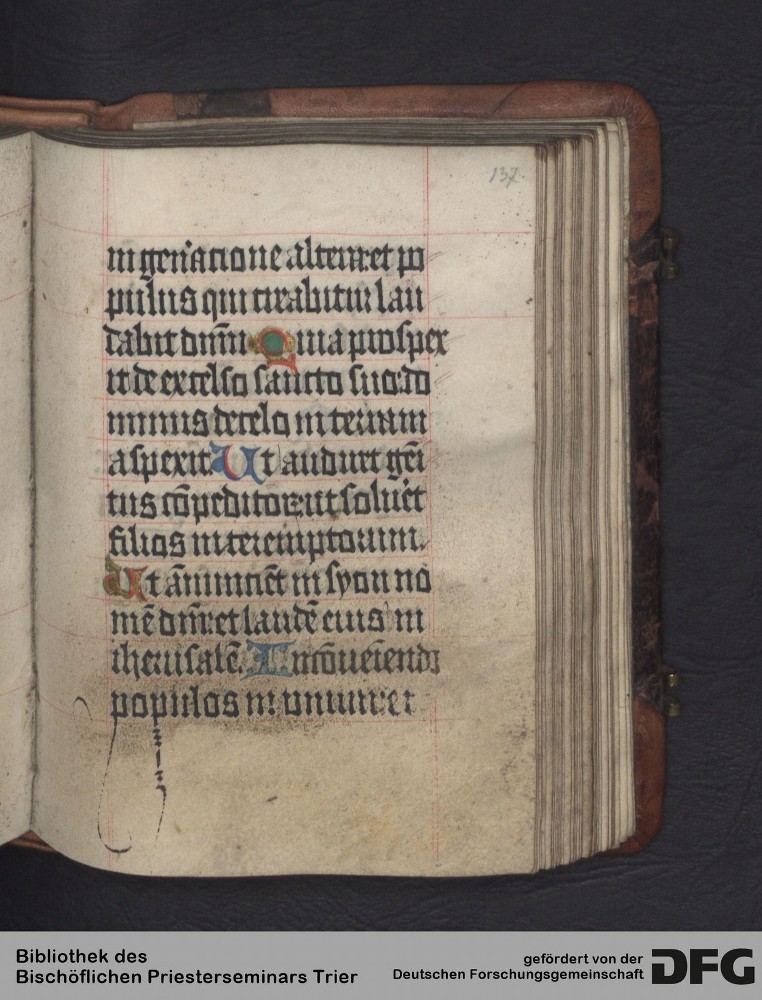 137
in gen'acione altera:et po
pulus qui creabitur lau
dabit dnm̄ Quia prospex
it de excelso sancto suo:do
minus de celo in terram
aspexit. Ut audiret gēi
tus cōpeditorꝝ:ut solu'et
filios interemptorum.
Ut ānuncie͞t in syon no
mē dni͞:et laudē eius in
iherusalē. In cōue͞iendo
populos in unum:et
Bibliothek des
Bischöflichen Priesterseminars Trier
gefördert von der
Deutschen Forschungsgemeinschaft
DFG